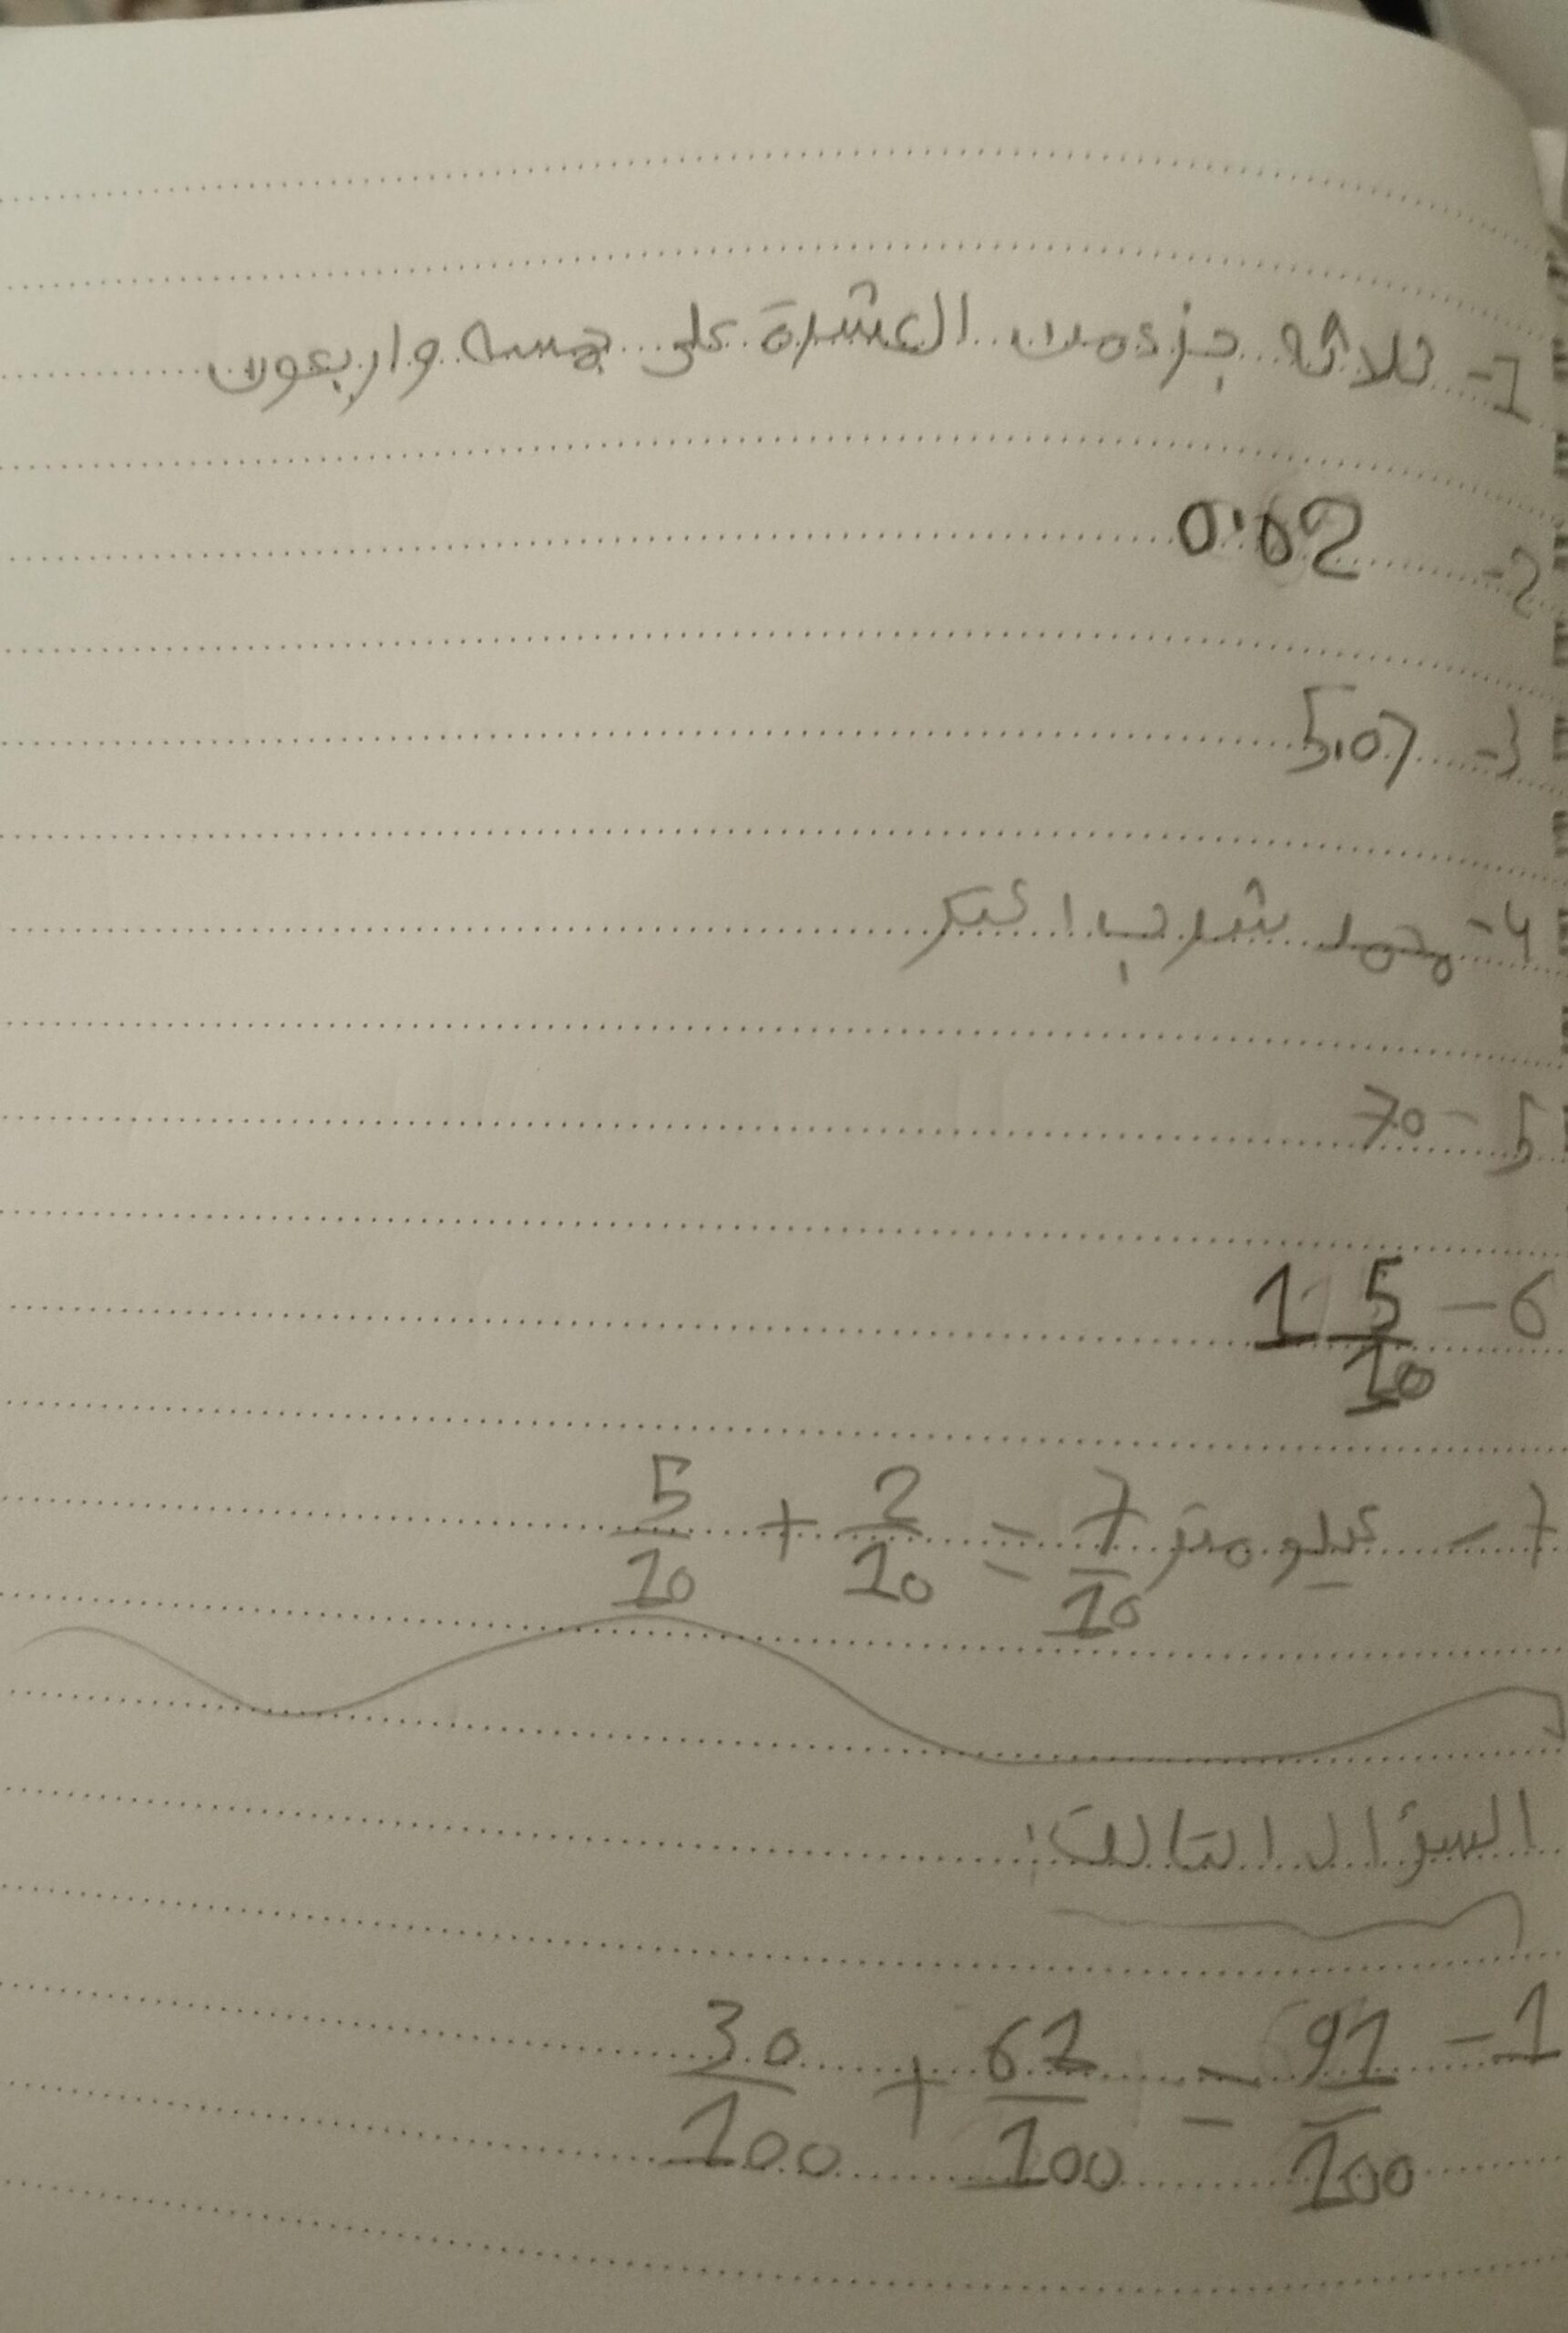 1- ثلاثه جزء من العشرة على خمسه واربعون
2- 0.02
3- 5,07
4- محمد شرب اكثر
5- 70
6- 1 5/10
7- 5/10 + 2/10 = 7/10 كيلو متر
السؤال الثالث:
1- 30/100 + 61/100 = 91/100